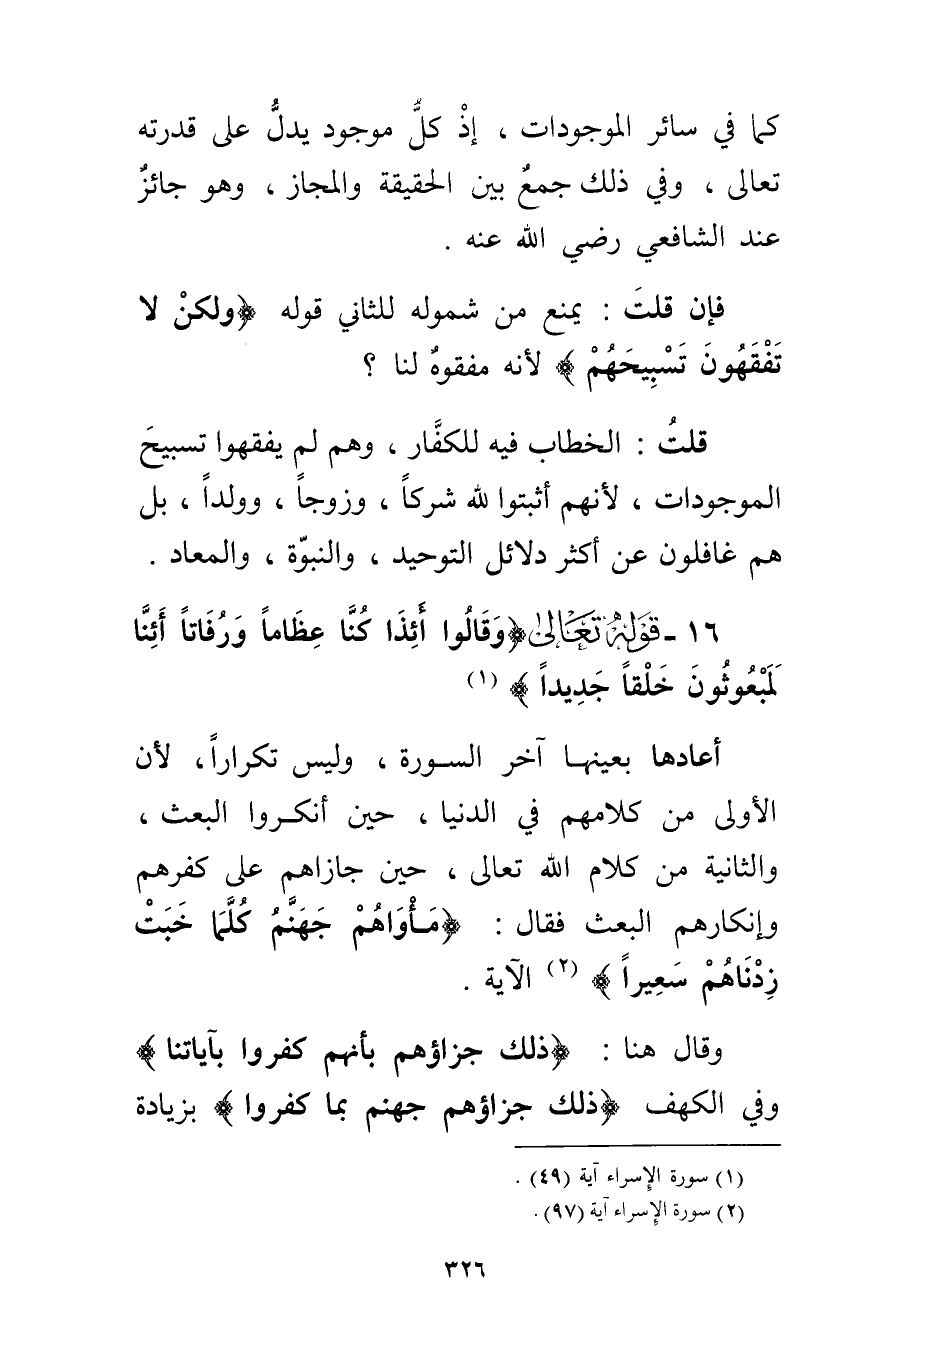 كما في سائر الموجودات ، إذْ كلُّ موجود يدلُّ على قدرته
تعالى ، وفي ذلك جمعٌ بين الحقيقة والمجاز ، وهو جائزٌ
عند الشافعي رضي الله عنه .
فإن قلتَ : يمنع من شموله للثاني قوله ﴿ولكنْ لا
تَفْقَهُونَ تَسْبِيحَهُمْ ﴾ لأنه مفقوهٌ لنا ؟
قلتُ : الخطاب فيه للكفَّار ، وهم لم يفقهوا تسبيحَ
الموجودات ، لأنهم أثبتوا لله شركاً ، وزوجاً ، وولداً ، بل
هم غافلون عن أكثر دلائل التوحيد ، والنبوّة ، والمعاد .
١٦ - قَوْلُهُ تَعَالىٰ ﴿وَقَالُوا أَئِذَا كُنَّا عِظَاماً وَرُفَاتاً أَئِنَّا
لَمَبْعُوثُونَ خَلْقاً جَدِيداً ﴾ (١)
أعادها بعينها آخر السورة ، وليس تكراراً ، لأن
الأولى من كلامهم في الدنيا ، حين أنكروا البعث ،
والثانية من كلام الله تعالى ، حين جازاهم على كفرهم
وإنكارهم البعث فقال : ﴿مَأْوَاهُمْ جَهَنَّمُ كُلَّمَا خَبَتْ
زِدْنَاهُمْ سَعِيراً ﴾ (٢) الآية .
وقال هنا : ﴿ذلك جزاؤهم بأنهم كفروا بآياتنا ﴾
وفي الكهف ﴿ذلك جزاؤهم جهنم بما كفروا ﴾ بزيادة
(١) سورة الإسراء آية (٤٩) .
(٢) سورة الإسراء آية (٩٧) .
٣٢٦